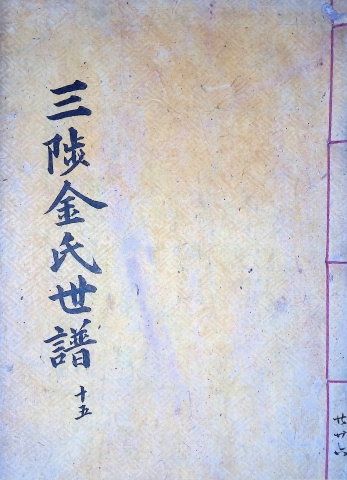 三陟金氏世譜
十五
共廿六